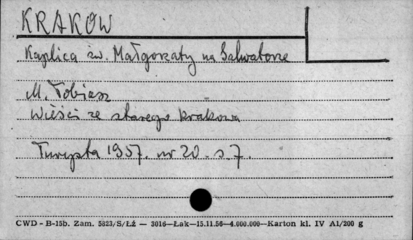 KRAKÓW
Kaplica św. Małgorzaty na Salwatorze
M. Tobiasz
Wieści ze starego Krakowa
Turysta 1957. nr 20. s. 7.
CWD - B-15b. Zam. 5823/S/Łż — 3016—Łak—15.11.56—4.000.000—Karton kl. IV A1/200 g